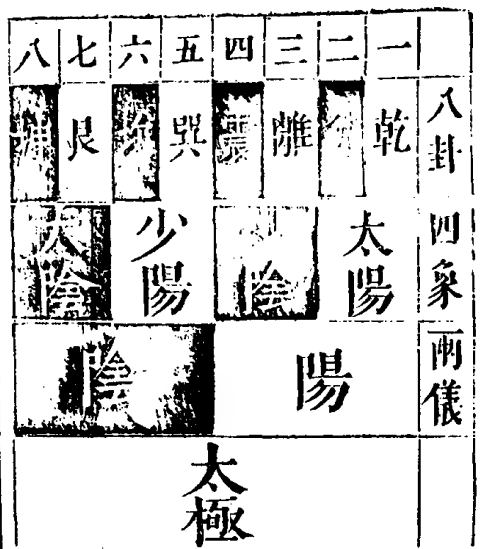 一 二 三 四 五 六 七 八
八卦 乾 兌 離 震 巽 坎 艮 坤
四象 太陽 少陰 少陽 太陰
兩儀 陽 陰
太極